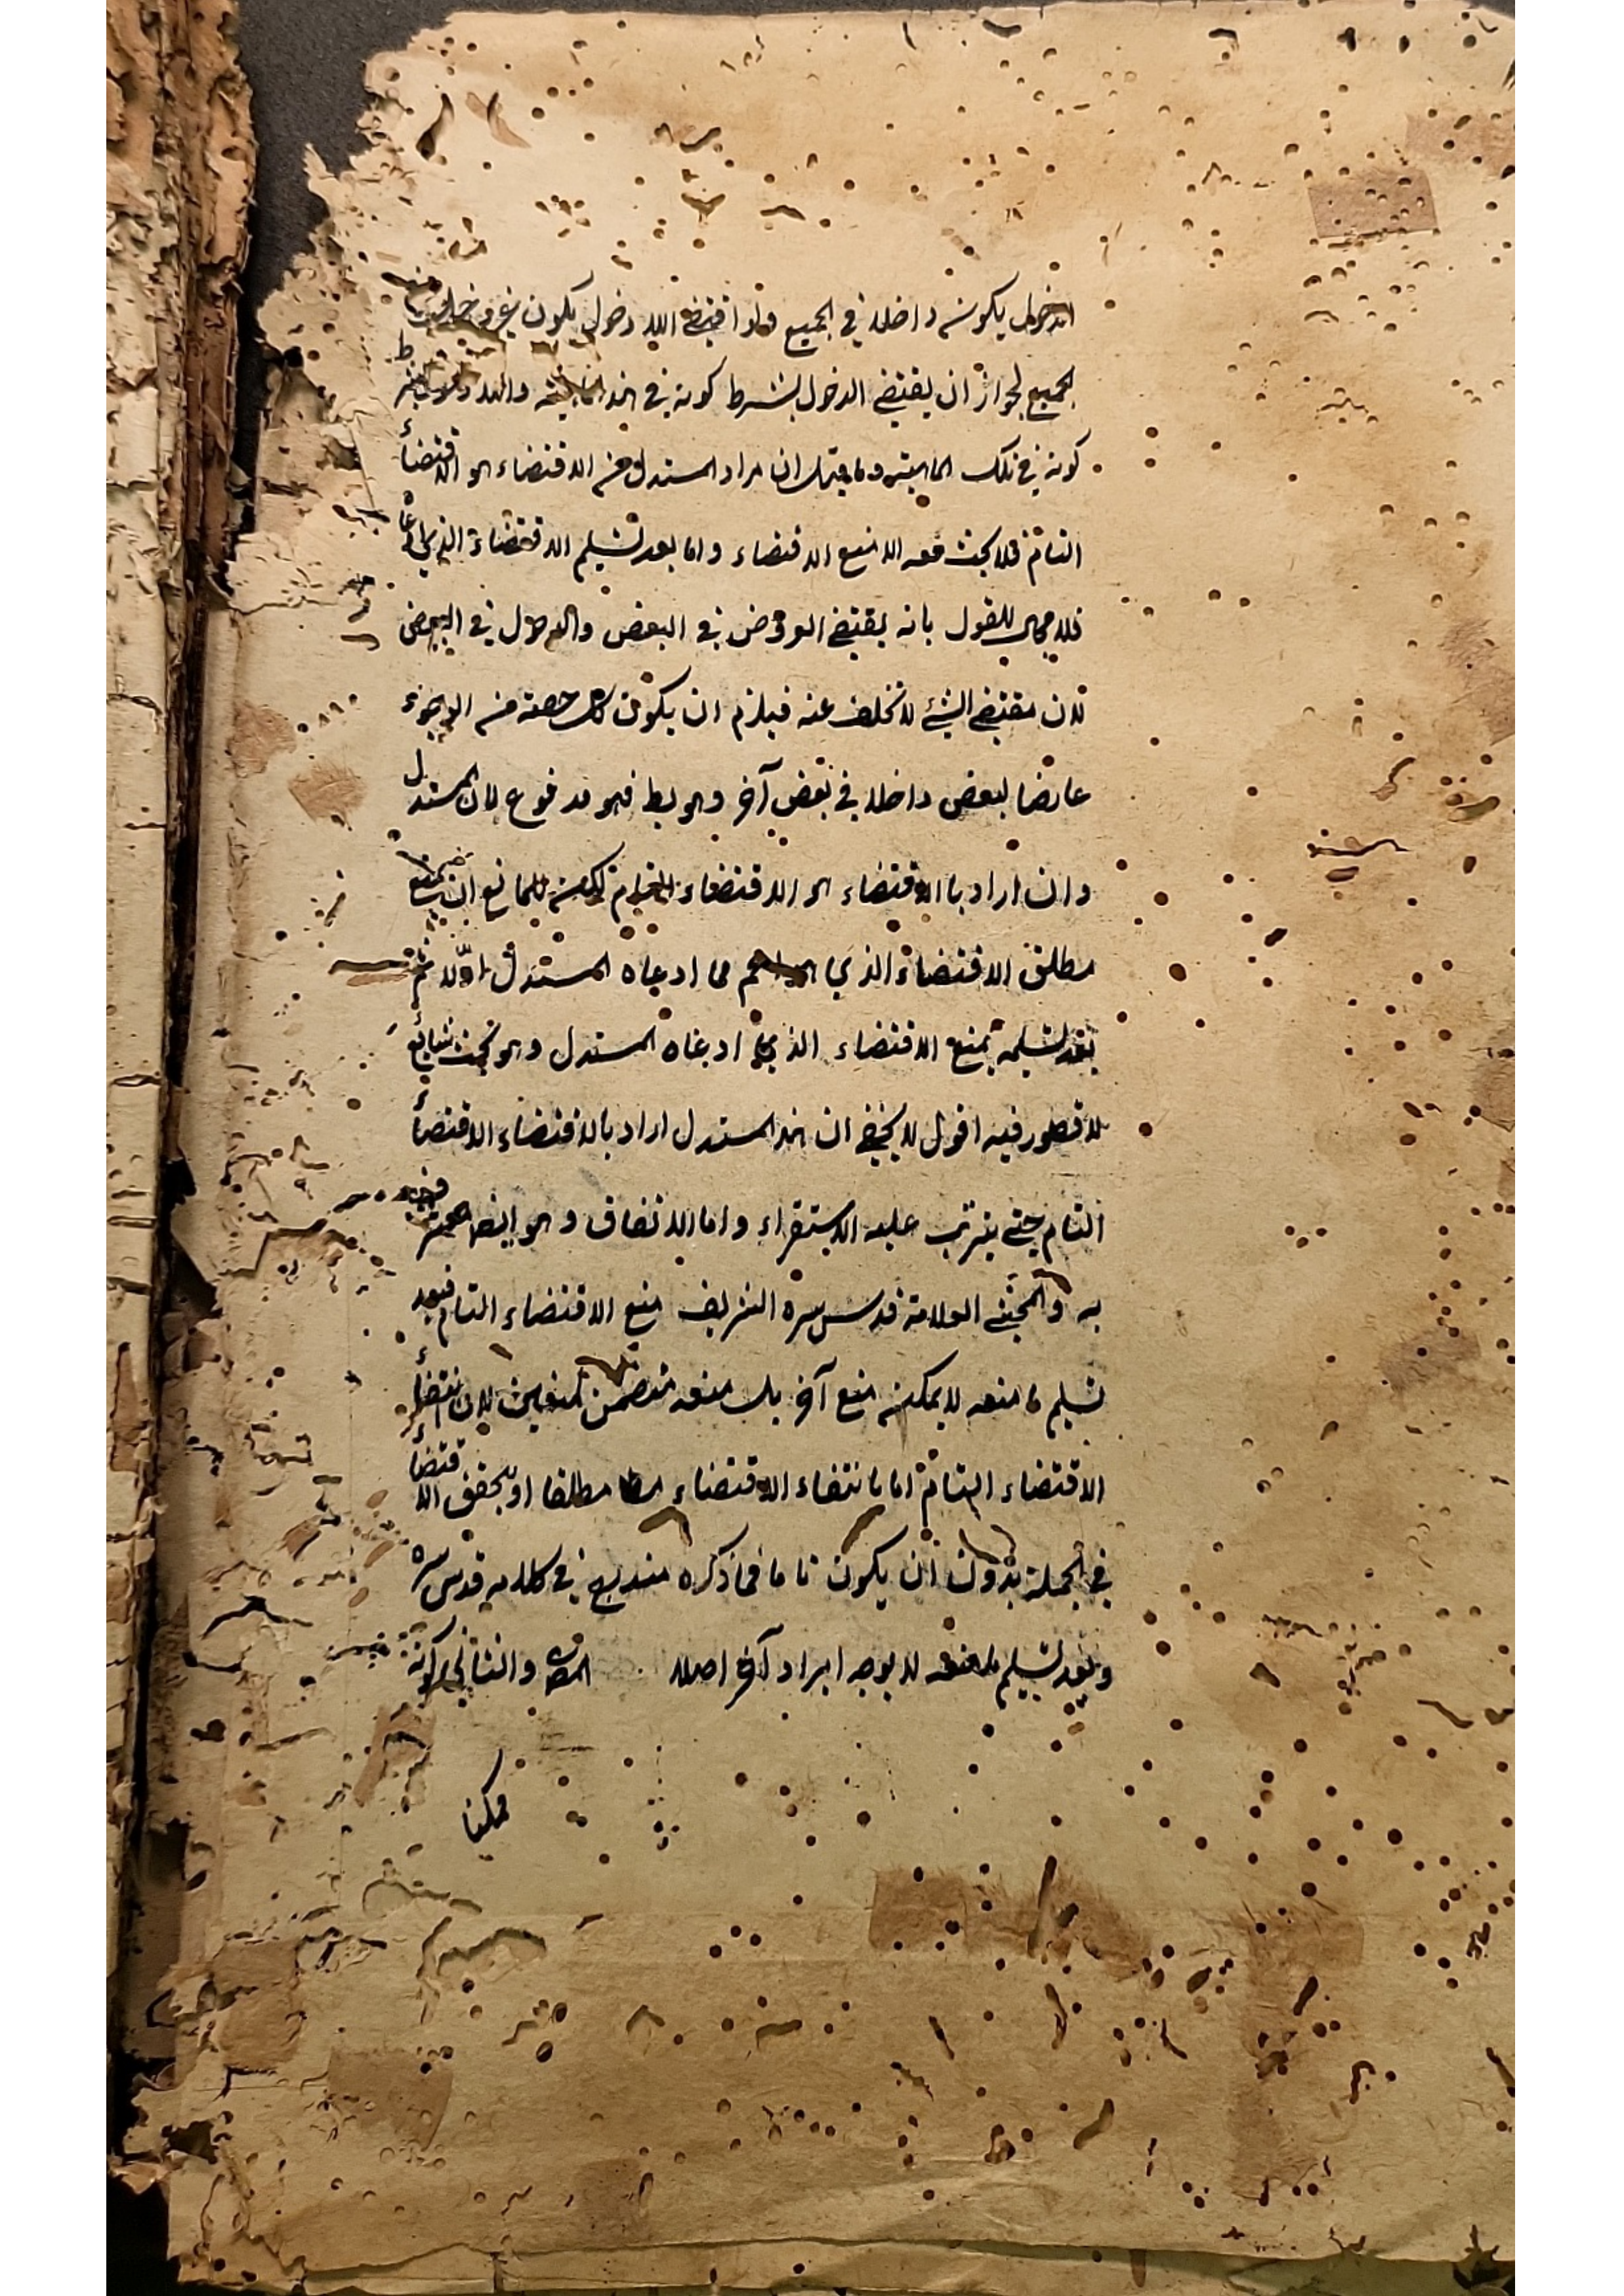 الدخول يكون داخلا في الجميع ولو اقتضى اللا دخول يكون غير داخل في
الجميع لجواز ان يقتضي الدخول بشرط كونه في هذه الماهية واللا دخول بشرط
كونه في تلك الماهية وما قيل ان مراد المستدل من الاقتضاء هو الاقتضاء
التام فلا بحث معه الا منع الاقتضاء واما بعد تسليم الاقتضاء الذي ادعاه
فلا مجال للقول بانه يقتضي العروض في البعض والدخول في البعض
لان مقتضى الشئ لا تخلف عنه فيلزم ان يكون كل حصة من الوجود
عارضا لبعض داخلا في بعض آخر وهو بط فهو مدفوع لان المستدل
وان اراد بالاقتضاء هو الاقتضاء التام لكن للمانع ان يمنع
مطلق الاقتضاء الذي اعم مما ادعاه المستدل اولا ثم
بعد تسليمه يمنع الاقتضاء الذي ادعاه المستدل وهو بحث شايع
لا قصور فيه اقول لا يخفى ان هذا المستدل اراد بالاقتضاء الاقتضاء
التام حتى يترتب عليه الاستقراء واما الاتصاف وهو ايضا
به والمحشي العلامة قدس سره الشريف منع الاقتضاء التام فبعد
تسليم ما منعه لا يمكن منع آخر بل منعه متضمن لمنعين لان انتفاء
الاقتضاء التام اما بانتفاء الاقتضاء مطلقا او بتحقق الاقتضاء
في الجملة بدون ان يكون تاما فما ذكره مندرج في كلامه قدس سره
وبعد تسليم ما منعه لا يوجه ايراد آخر اصلا المص والثاني كونه
ممكنا